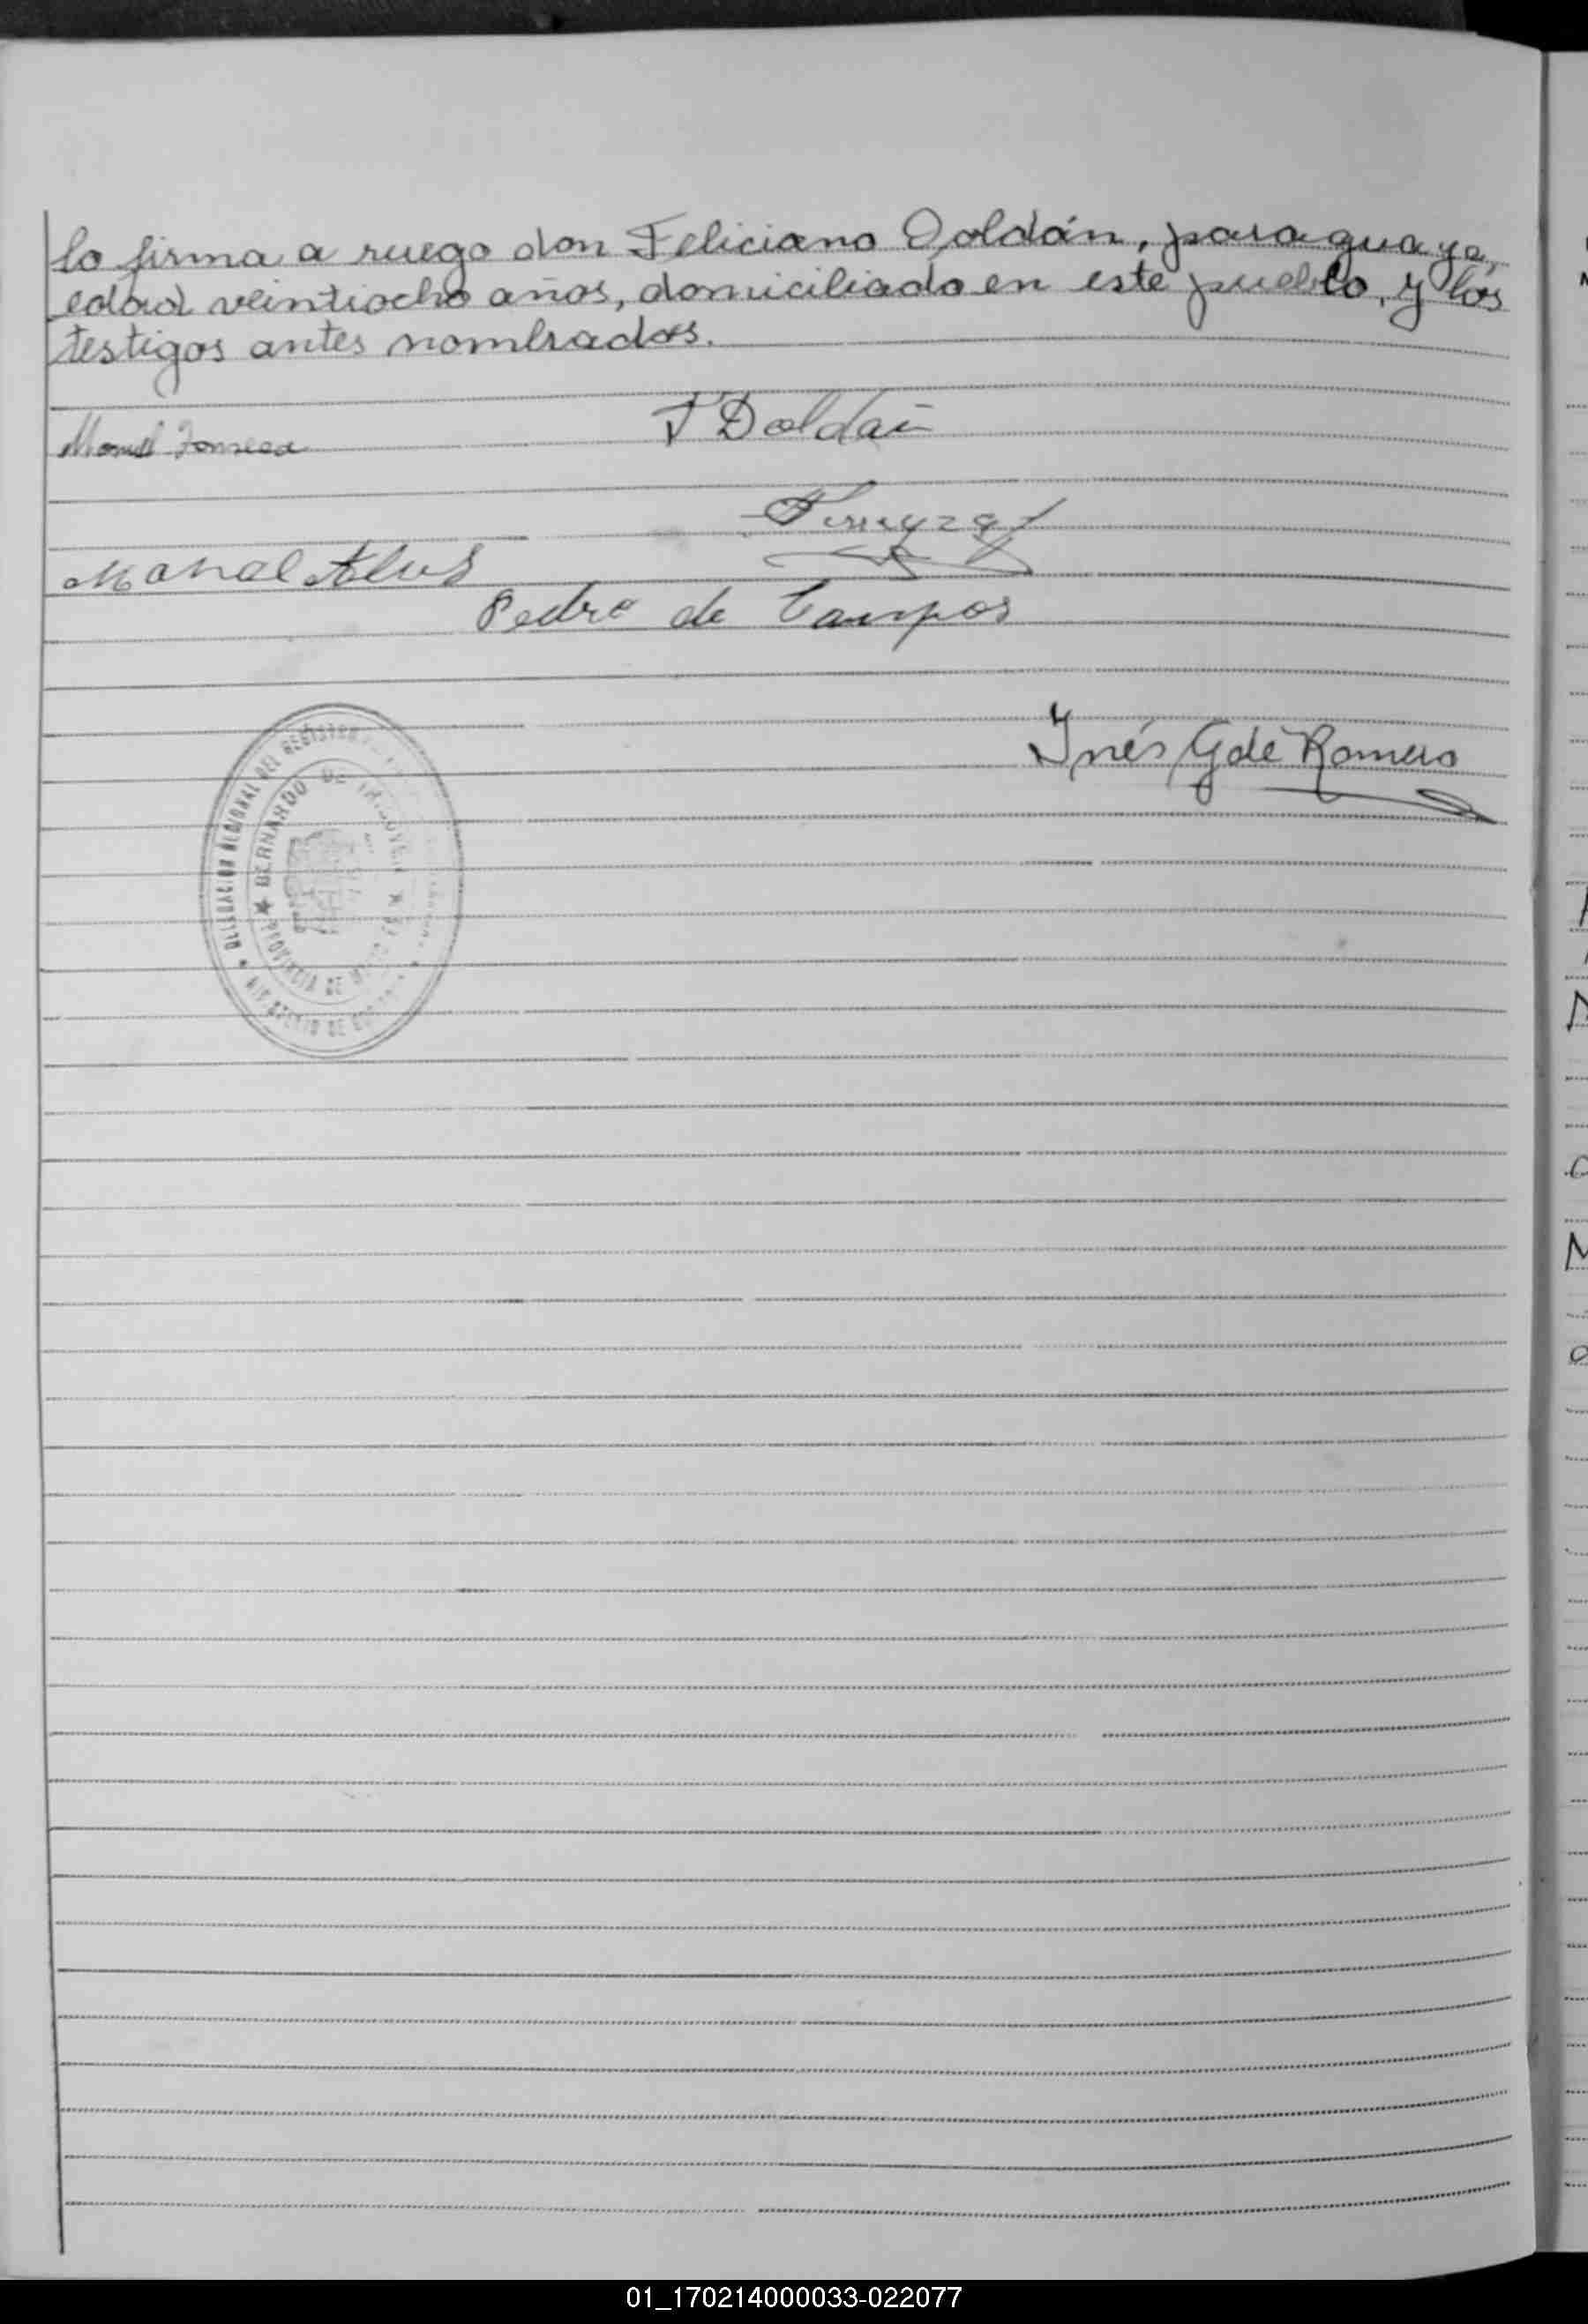 lo firma a ruego don Feliciano Doldán, paraguayo,
edad veintiocho años, domiciliado en este pueblo, y los
testigos antes nombrados.
F Doldán
Manuel Fonseca
Manoel Alves
Pedro de Campos
Inés G de Romero
DELEGACION REGIONAL DEL REGISTRO
★ BERNARDO DE IRIGOYEN ★
PROVINCIA DE
MINISTERIO DE
01_170214000033-022077